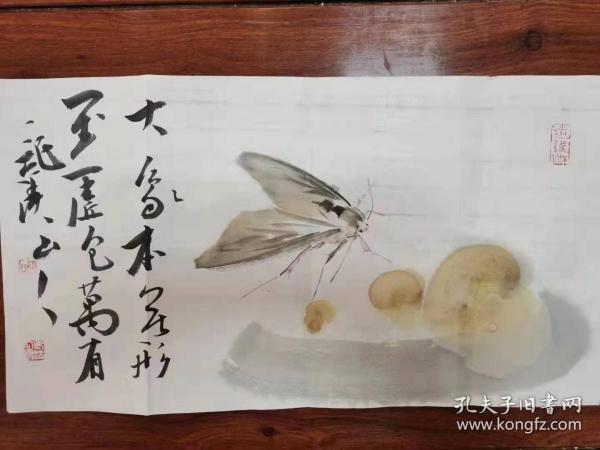 大象本無形
至虛包萬有
山人
孔夫子旧书网
www.kongfz.com